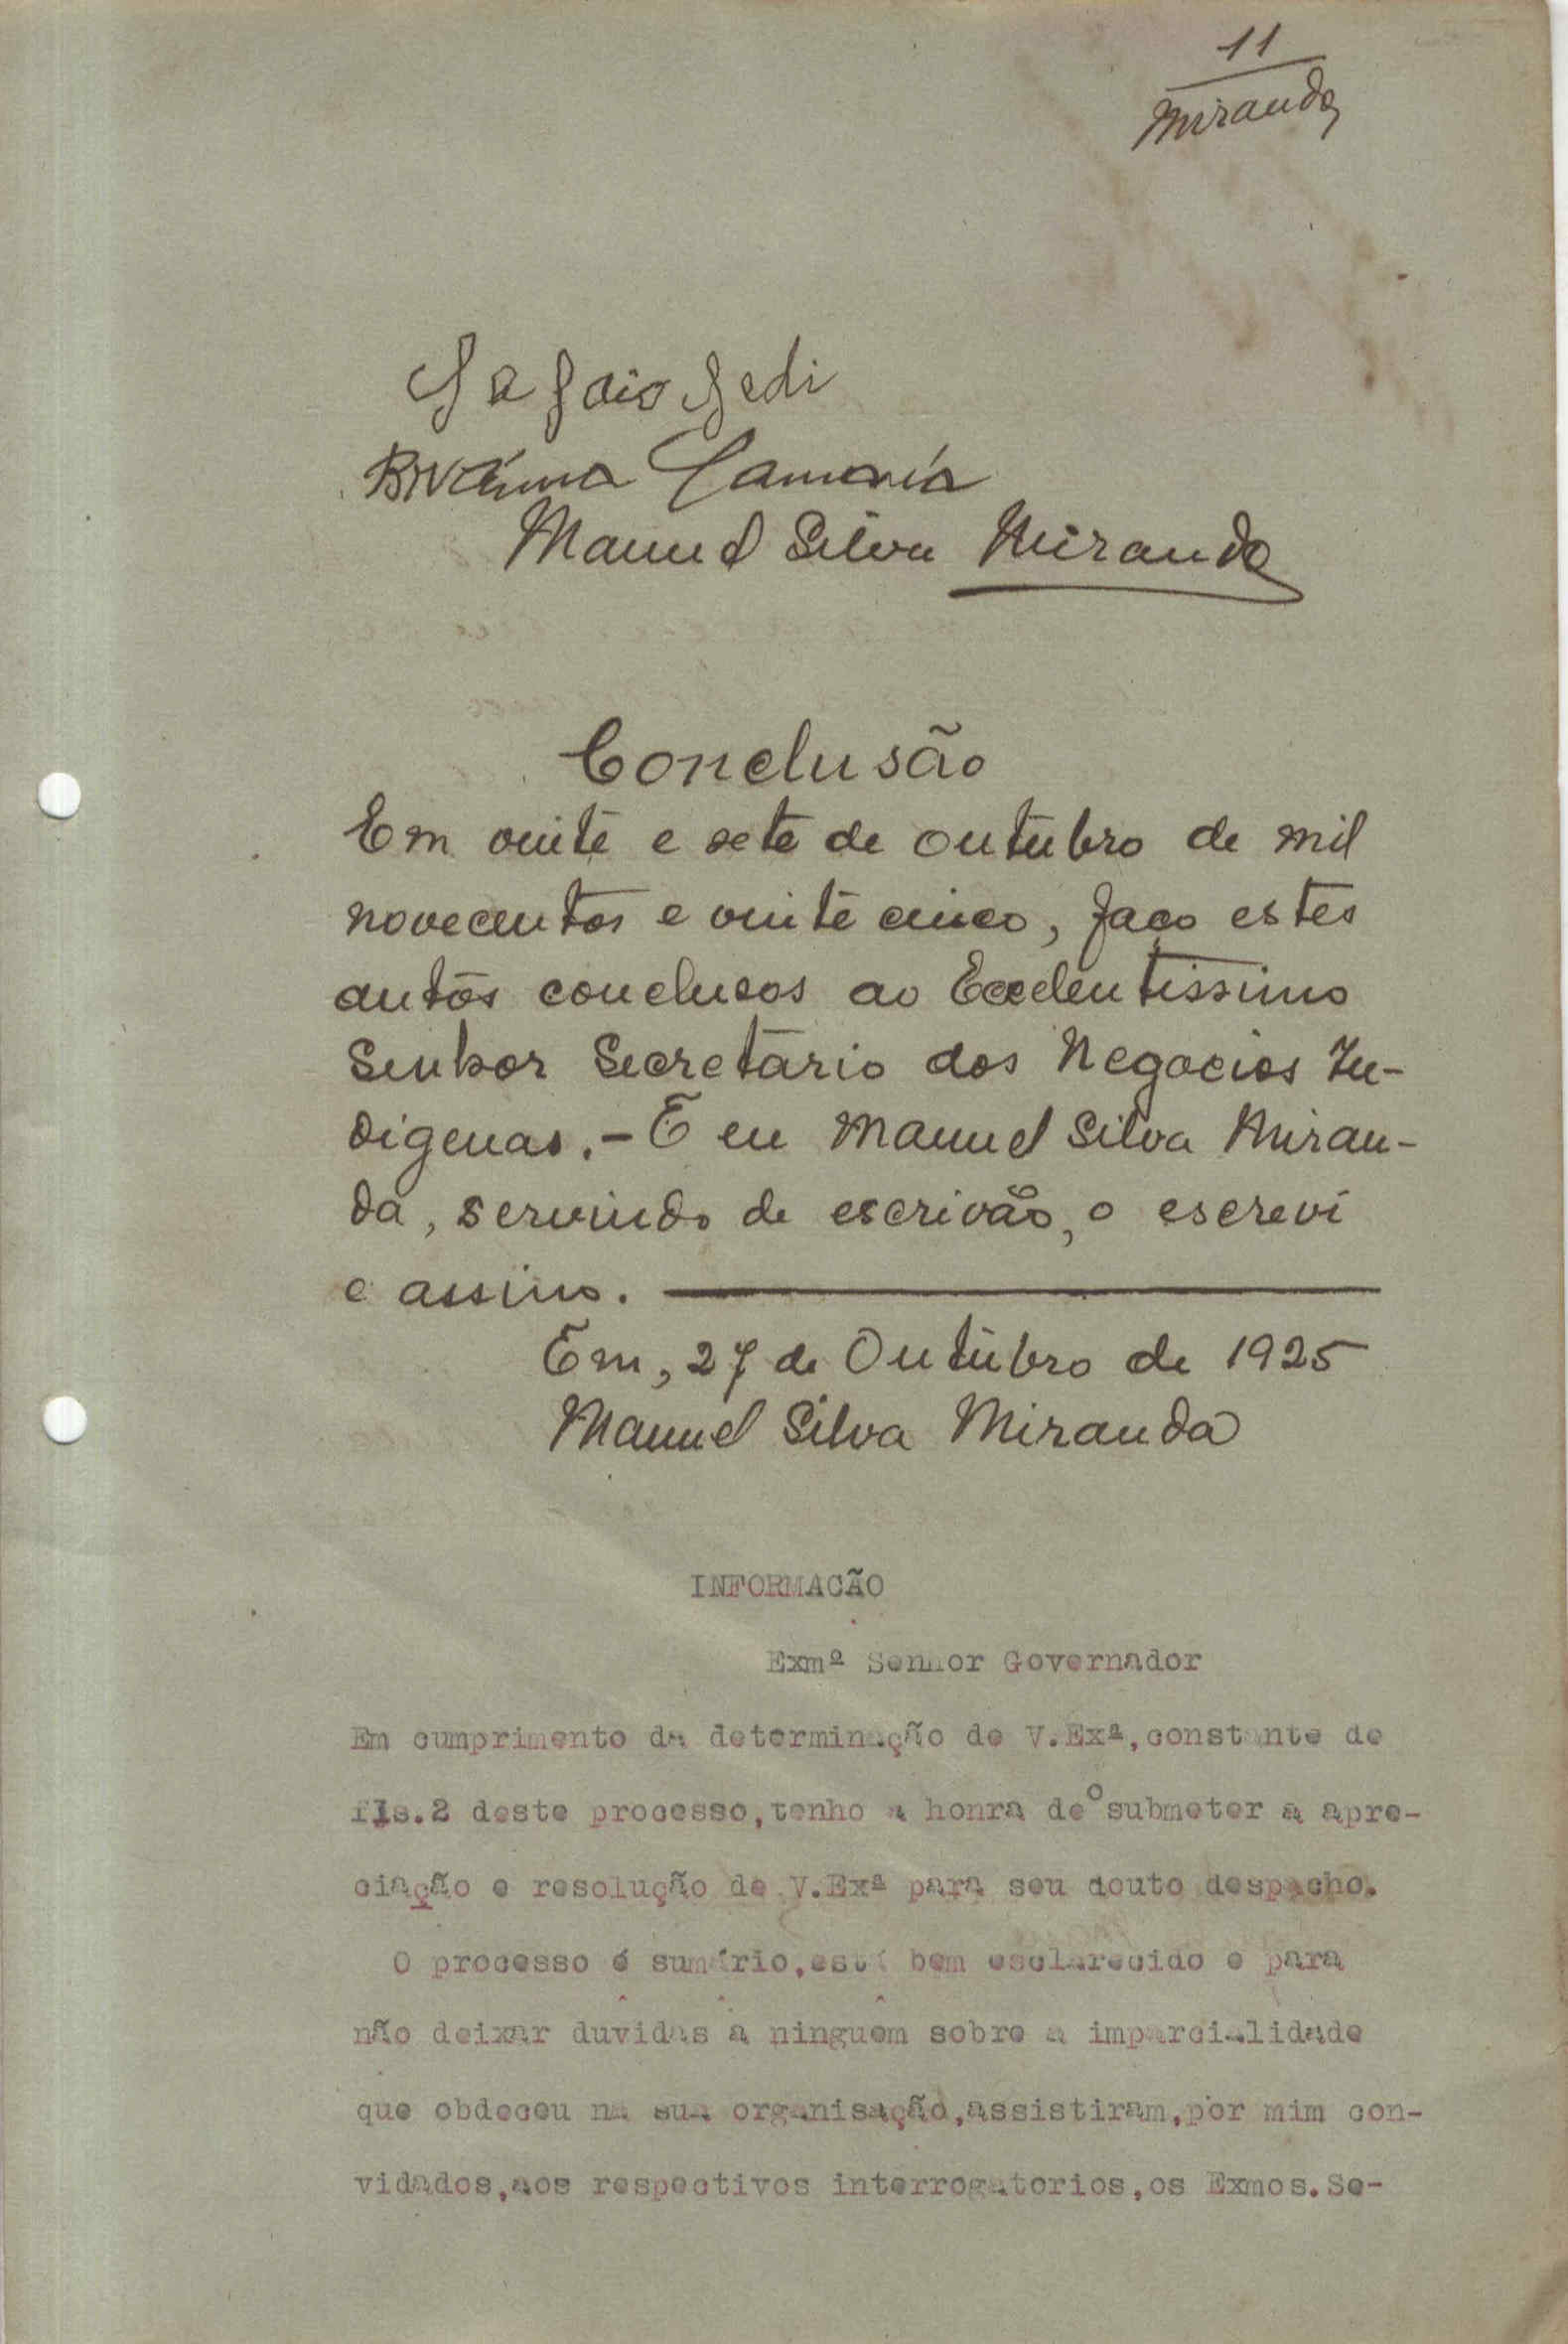 11
Miranda
Manuel Silva Miranda
Conclusão
Em vinte e sete de outubro de mil
novecentos e vinte cinco, faço estes
autos conclusos ao Excelentissimo
Senhor Secretario dos Negocios In-
digenas. - E eu Manuel Silva Miran-
da, servindo de escrivão, o escrevi
e assino.
Em, 27 de Outubro de 1925
Manuel Silva Miranda
INFORMAÇÃO
Exmº Senhor Governador
Em cumprimento da determinação de V.Exª,constante de
fls.2 deste processo,tenho a honra de o submeter a apre-
ciação e resolução de V.Exª para seu douto despacho.
O processo é sumário,está bem esclarecido e para
não deixar duvidas a ninguem sobre a imparcialidade
que obdeceu na sua organisação,assistiram,por mim con-
vidados,aos respectivos interrogatorios,os Exmos.Se-